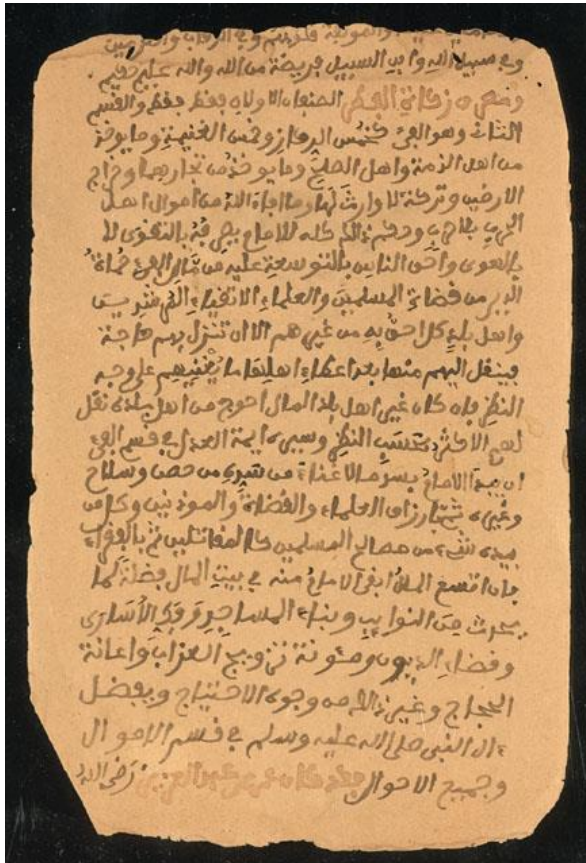 والمولفة قلوبهم وفي الرقاب والغارمين
وفي سبيل الله وابن السبيل فريضة من الله والله عليم حكيم
ومصرف زكاة الفطر الصنفان الاولان فقط فقط والقسم
الثاني وهو الفيء كخمس الركاز وخمس الغنيمة وما يوخذ
من اهل الذمة واهل الصلح وما يوخذ من تجارهما وخراج
الارضين وتركة لا وارث لها وما افاء الله من اموال اهل
الحرب بلا حرب وحكم ذلك كله للامام يصرفه بالتقوى لا
بالهوى واحق الناس بالتوسعة عليه من مال الفيء حماة
الدين من قضاة المسلمين والعلماء الاتقياء
واهل بلد كل احق به من غيرهم الا ان تنزل بهم حاجة
فينقل اليهم منها بعد اعطاء اهلها ما يغنيهم على وجه
النظر فان كان غير اهل بلد المال احوج من اهل بلده نقل
لهم الاكثر بحسب النظر وسيرة ايمة العدل في قسم الفيء
ان يبدأ الامام بسد ما لا غناء عن سده من حصن وسلاح
وغيره ثم بارزاق العلماء والقضاة والموذنين وكل من
بيده شيء من مصالح المسلمين كالمقاتلين ثم بالفقراء
فان اتسع المال ابقى الامام منه في بيت المال فضلة لما
يحدث من النوايب وبناء المساجد وفك الاسارى
وقضاء الديون ومئونة تزويج العزاب واعانة
الحجاج وغير ذلك من وجوه الاحتياج ويفضل
ءال النبي صلى الله عليه وسلم في قسم الاموال
وجميع الاحوال فقد كان عمر بن عبد العزيز رضي الله